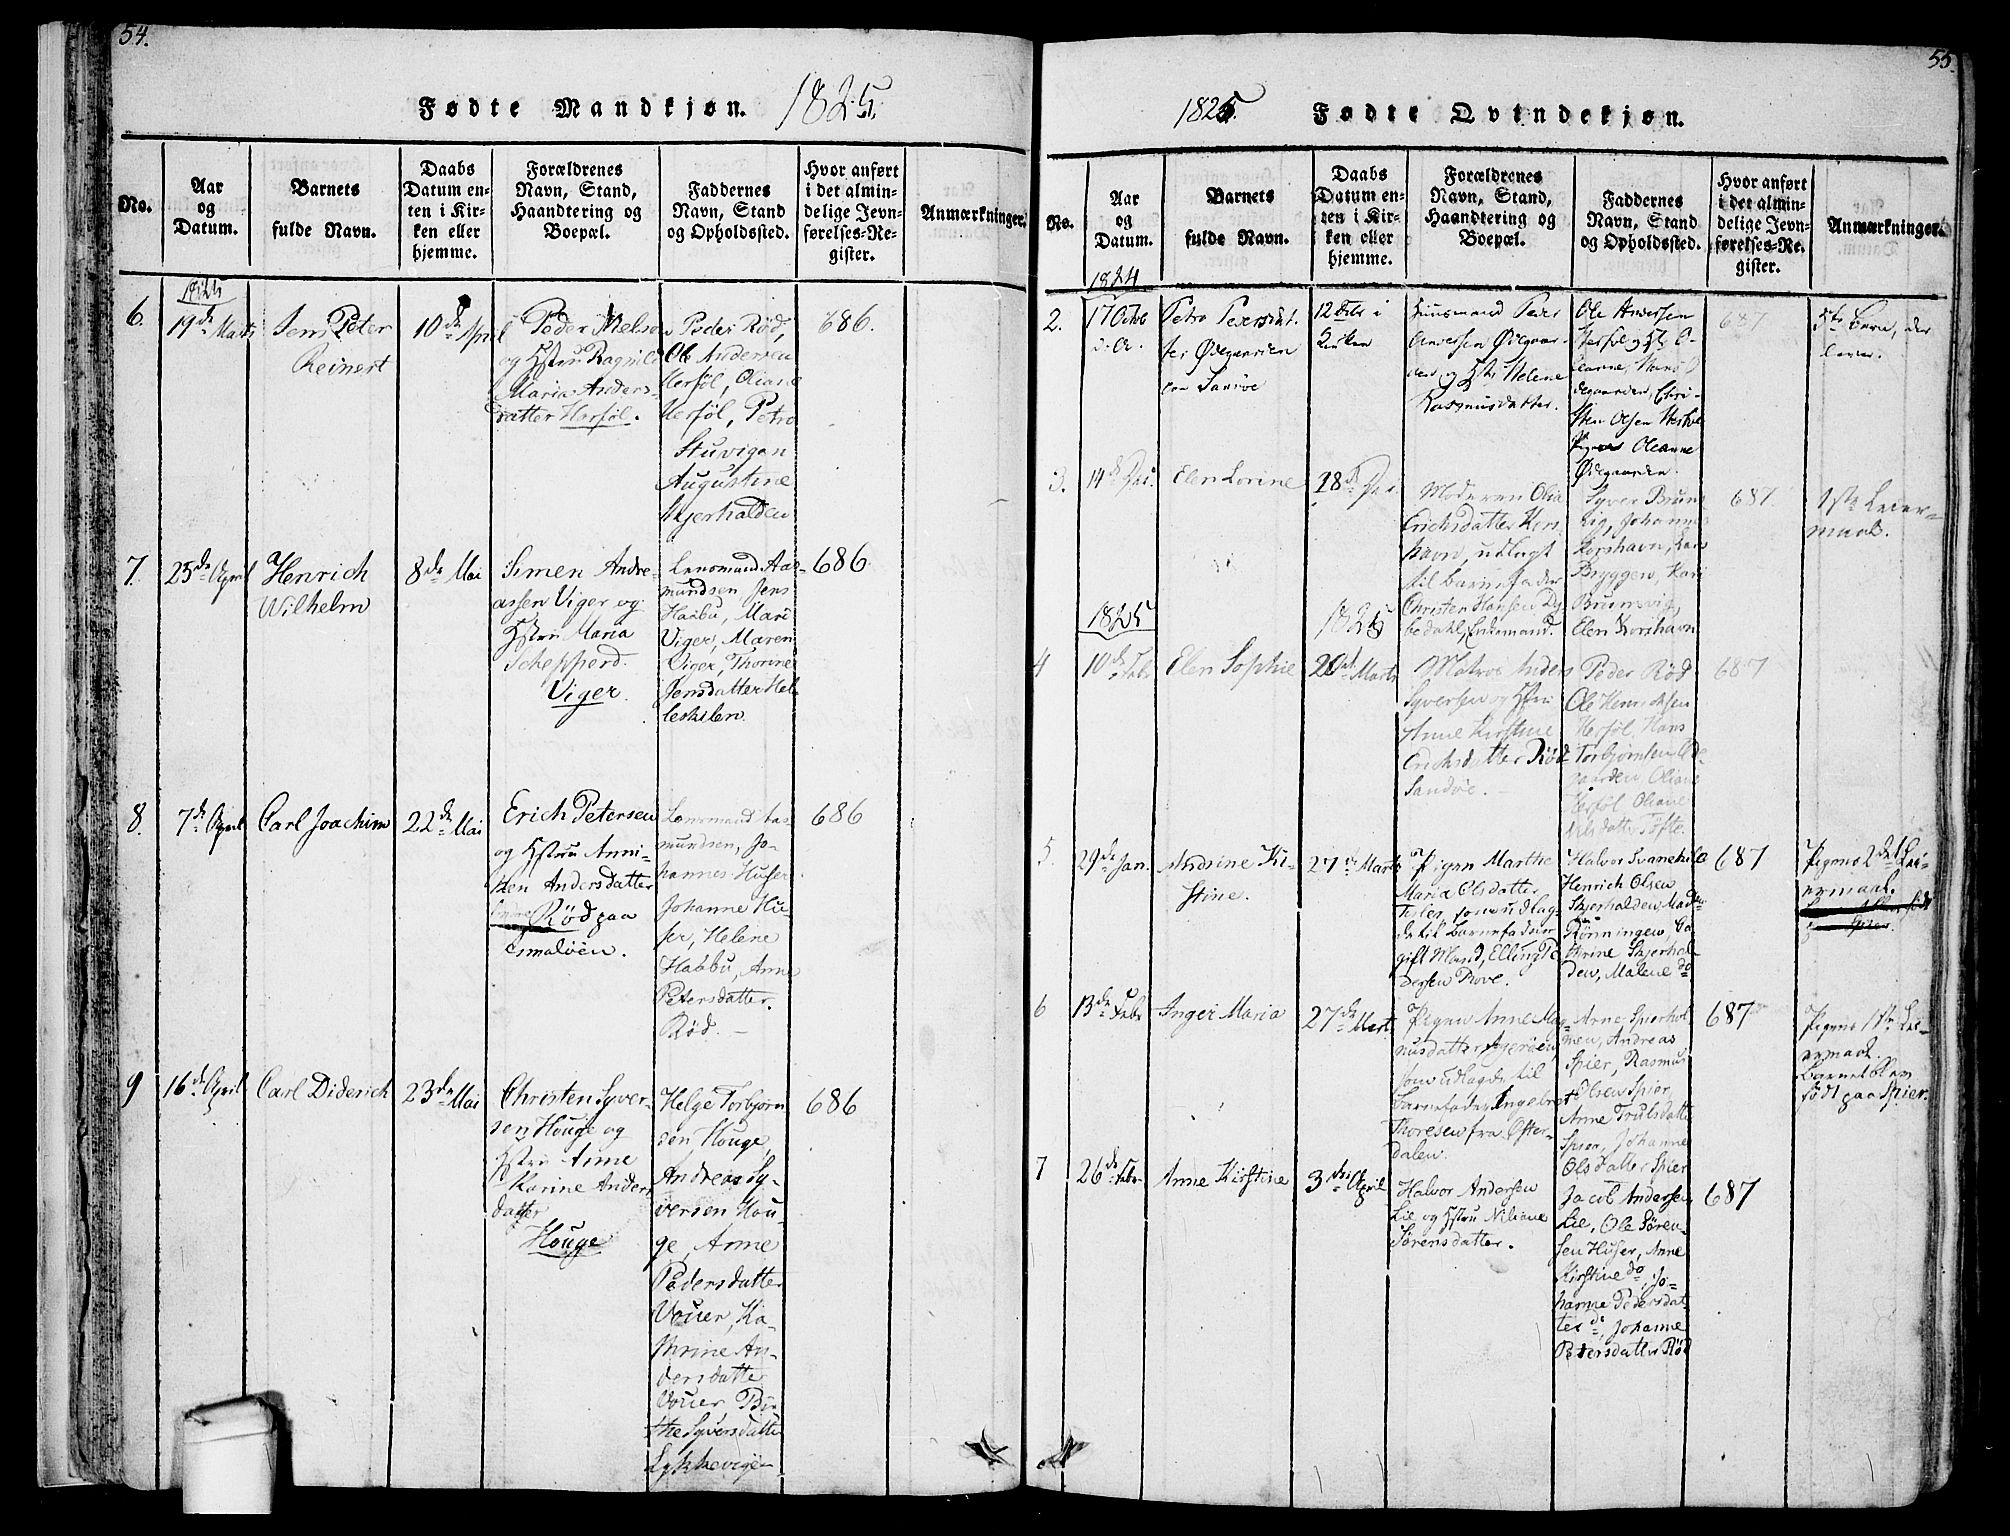 54.
Fødte Mandkjøn. 1825.
No.
Aar
og
Datum.
Barnets
fulde Navn.
Daabs
Datum en-
ten i Kir-
ken eller
hjemme.
Forældrenes
Navn, Stand,
Haandtering og
Boepæl.
Faddernes
Navn, Stand
og Opholdssted.
Hvor anført
i det almin-
delige Jevn-
førelses-Re-
gister.
Anmærkninger.
6.
1825
19de Marts
Jens Peter
Reinert
10de April
Peder Nelsen
og Hstru Ragnild
Maria Anders-
datter Herföl.
Peder Röd,
Ole Andersen
Herföl, Oliane
Herföl, Petro
Stuvigen
Augustine
Skjerhalden
686.
7.
25de April
Henrich
Wilhelm
8de Mai
Simen Andre-
assen Viger og
Hstru Maria
Schepperd.
Viger.
Lensmand Aas-
mundsen, Jens
Haabu, Mari
Viger, Maren
Viger, Thorine
Jensdatter Hel-
leskilen
686.
8.
7de April
Carl Joachim
22de Mai
Erich Petersen
og Hstru Anni-
ken Andersdatter
Röd paa
Asmalöen.
Lensmand Aas-
mundsen, Jo-
hannes Huser
Johanne Hu-
ser, Helene
Habbu, Anne
Petersdatter.
Röd. —
686
9
16de April
Carl Diderich
23de Mai
Christen Syver-
sen Houge og
Hstru Anne
Karine Anders
datter
Houge
Helge Torbjörn
sen Houge,
Andreas Sy-
versen Hou-
ge, Anne
Pedersdatter
Vouer, Ka-
thrine An-
dersdatter
Vouer Bir-
the Syversdatter
Lykkevigen
686
55.
1825. Fødte Qvindekjøn.
No.
Aar
og
Datum.
Barnets
fulde Navn.
Daabs
Datum en-
ten i Kir-
ken eller
hjemme.
Forældrenes
Navn, Stand,
Haandtering og
Boepæl.
Faddernes
Navn, Stand
og Opholdssted.
Hvor anført
i det almin-
delige Jevn-
førelses-Re-
gister.
Anmærkninger.
1824
2.
17 Octob
Petro Pedersdat-
ter Ödegaarden
Sandöe
12 Febr i
Kirken
Huusmand Peder
Andersen Ödegaar-
den og Hstr Helene
Rasmusdatter.
Ole Andersen
Herföl og Hst O-
leanne, Hans Ö-
degaarden, Chri-
sten Olsen
Oleanne
Ödegaarden.
687
5te Barn, der
lever.
3.
14de
Elen Lorine
28de
Moderen Olia
Erichsdatter Kors-
havn, udlagt
til barnefader
Christen Hansen Dy-
bedahl, Enkemand.
Syver Bruns-
vig, Johannes
Korshavn, Lars
Bryggen, Kari
Brunsvig,
Elen Korshavn
687.
1ste Leier-
maal.
1825
1825
4
10de Febr
Elen Sophie
20de Marts
Matros Anders
Syversen og Hstru
Anne Kirstine
Erichsdatter Röd
Sandöe. —
Peder Röd
Ole Henrichsen
Herföl, Hans
Torbjörnsen Öde-
gaarden, Oliane
Herföl, Oliane
Nilsdatter Tofte.
687
5
29de Jan.
Andrine Ki-
stine.
27de Marts
Pigen Marthe
Maria Olsdatter
som udlag-
de til Barnefader
gift Mand, Elling Pe-
dersen Rove.
Halvor Svanekile
Henrich Olsen
Skjerhalden, Mad
Rönningen, Ca-
thrine Skjerhal-
den, Malene do
687
Pigens 2det Lei-
ermaal.
6
13de Febr
Inger Maria
27de Mart.
Pigen Anne Mag-
nusdatter Asgeröen,
som udlagde til
Barnefader Engebret
Thoresen fra Öster-
dalen.
Arne Spierhol-
men, Andreas
Spier, Rasmus
Olsen Spier,
Anne Trulsdatter
Spier, Johanne
Olsdatter Spier
687
Pigens 1ste Lei-
ermaal.
Barnet blev
födt paa Spier.
7
26de Febr
Anne Kirstine
3die April
Halvor Andersen
Lie og Hstru Niliane
Sörensdatter.
Jacob Andersen
Lie, Ole Sören-
sen Huser, Anne
Kirstine do, Jo-
hanne Pedersdat-
ter do, Johanne
Petersdatter Röd
687